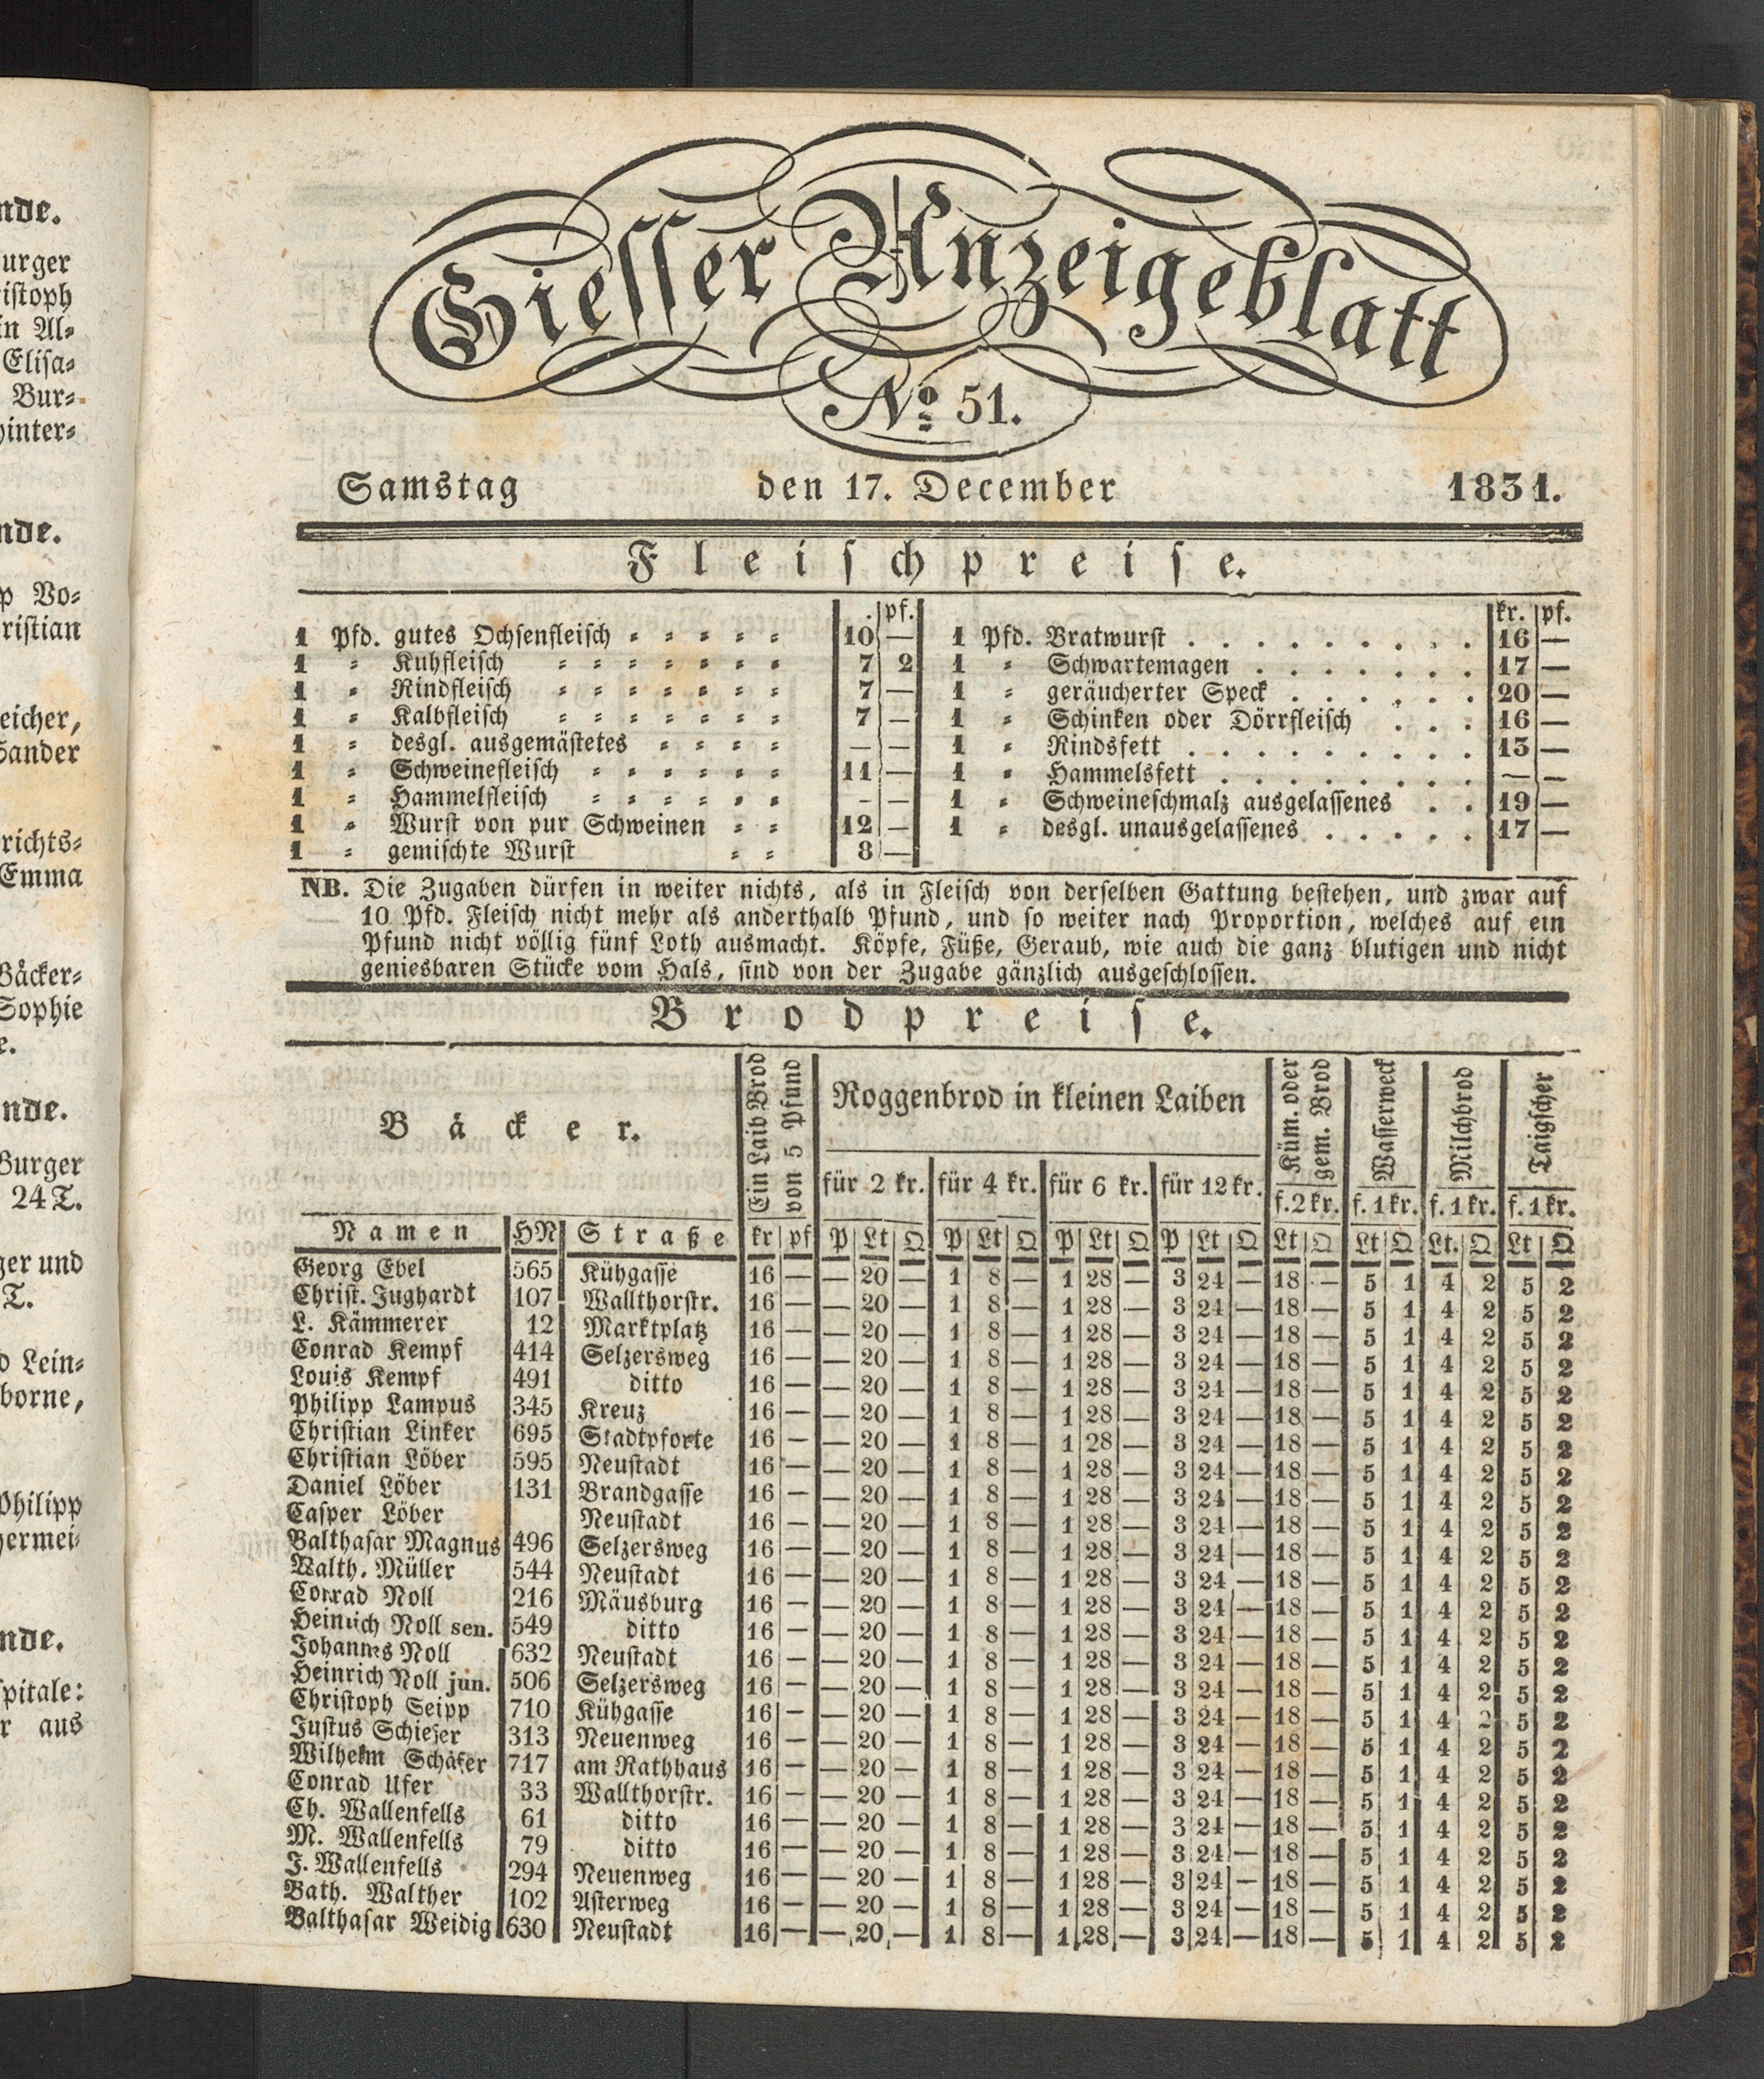 nde.
urger
istoph
in Al⸗
Elisa⸗
Bur⸗
hinter⸗
nde.
p Vo⸗
ristian
eicher,
Sander
richts⸗
Emma
Bäcker⸗
Sophie
e.
nde.
Burger
24 T.
ger und
T.
d Lein⸗
borne,
Philipp
hermei⸗
nde.
spitale:
r aus
Giesser Anzeigeblatt
No. 51.
Samstag den 17. December 1831.
Fleischpreise.
. pf. kr. pf.
1 Pfd. gutes Ochsenfleisch 10 — 1 Pfd. Bratwurst 16 —
1 ⸗ Kuhfleisch 7 2 1 ⸗ Schwartemagen 17 —
1 ⸗ Rindfleisch 7 — 1 ⸗ geräucherter Speck 20 —
1 ⸗ Kalbfleisch 7 — 1 ⸗ Schinken oder Dörrfleisch 16 —
1 ⸗ desgl. ausgemästetes — — 1 ⸗ Rindsfett 15 —
1 ⸗ Schweinefleisch 11 — 1 ⸗ Hammelsfett — —
1 ⸗ Hammelfleisch — — 1 ⸗ Schweineschmalz ausgelassenes 19 —
1 ⸗ Wurst von pur Schweinen 12 — 1 ⸗ desgl. unausgelassenes 17 —
1 ⸗ gemischte Wurst 8 —
NB. Die Zugaben dürfen in weiter nichts, als in Fleisch von derselben Gattung bestehen, und zwar auf
10 Pfd. Fleisch nicht mehr als anderthalb Pfund, und so weiter nach Proportion, welches auf ein
Pfund nicht völlig fünf Loth ausmacht. Köpfe, Füße, Geraub, wie auch die ganz blutigen und nicht
geniesbaren Stücke vom Hals, sind von der Zugabe gänzlich ausgeschlossen.
Brodpreise.
Bäcker.
Ein Laib Brod
von 5 Pfund
Roggenbrod in kleinen Laiben
Küm. oder
gem. Brod
Wasserweck
Milchbrod
Taigscher
für 2 kr. für 4 kr. für 6 kr. für 12 kr. f. 2 kr. f. 1 kr. f. 1 kr. f. 1 kr.
Namen HN Straße kr pf P Lt Q P Lt Q P Lt Q P Lt Q Lt Q Lt Q Lt. Q Lt Q
Georg Ebel 565 Kühgasse 16 — — 20 — 1 8 — 1 28 — 3 24 — 18 — 5 1 4 2 5 2
Christ. Jughardt 107 Wallthorstr. 16 — — 20 — 1 8 — 1 28 — 3 24 — 18 — 5 1 4 2 5 2
L. Kämmerer 12 Marktplatz 16 — — 20 — 1 8 — 1 28 — 3 24 — 18 — 5 1 4 2 5 2
Conrad Kempf 414 Selzersweg 16 — — 20 — 1 8 — 1 28 — 3 24 — 18 — 5 1 4 2 5 2
Louis Kempf 491 ditto 16 — — 20 — 1 8 — 1 28 — 3 24 — 18 — 5 1 4 2 5 2
Philipp Lampus 345 Kreuz 16 — — 20 — 1 8 — 1 28 — 3 24 — 18 — 5 1 4 2 5 2
Christian Linker 695 Stadtpforte 16 — — 20 — 1 8 — 1 28 — 3 24 — 18 — 5 1 4 2 5 2
Christian Löber 595 Neustadt 16 — — 20 — 1 8 — 1 28 — 3 24 — 18 — 5 1 4 2 5 2
Daniel Löber 131 Brandgasse 16 — — 20 — 1 8 — 1 28 — 3 24 — 18 — 5 1 4 2 5 2
Casper Löber Neustadt 16 — — 20 — 1 8 — 1 28 — 3 24 — 18 — 5 1 4 2 5 2
Balthasar Magnus 496 Selzersweg 16 — — 20 — 1 8 — 1 28 — 3 24 — 18 — 5 1 4 2 5 2
Walth. Müller 544 Neustadt 16 — — 20 — 1 8 — 1 28 — 3 24 — 18 — 5 1 4 2 5 2
Conrad Noll 216 Mäusburg 16 — — 20 — 1 8 — 1 28 — 3 24 — 18 — 5 1 4 2 5 2
Heinrich Noll sen. 549 ditto 16 — — 20 — 1 8 — 1 28 — 3 24 — 18 — 5 1 4 2 5 2
Johannes Noll 632 Neustadt 16 — — 20 — 1 8 — 1 28 — 3 24 — 18 — 5 1 4 2 5 2
Heinrich Noll jun. 506 Selzersweg 16 — — 20 — 1 8 — 1 28 — 3 24 — 18 — 5 1 4 2 5 2
Christoph Seipp 710 Kühgasse 16 — — 20 — 1 8 — 1 28 — 3 24 — 18 — 5 1 4 2 5 2
Justus Schieser 313 Neuenweg 16 — — 20 — 1 8 — 1 28 — 3 24 — 18 — 5 1 4 2 5 2
Wilhelm Schäfer 717 am Rathhaus 16 — — 20 — 1 8 — 1 28 — 3 24 — 18 — 5 1 4 2 5 2
Conrad Ufer 33 Wallthorstr. 16 — — 20 — 1 8 — 1 28 — 3 24 — 18 — 5 1 4 2 5 2
Ch. Wallenfells 61 ditto 16 — — 20 — 1 8 — 1 28 — 3 24 — 18 — 5 1 4 2 5 2
M. Wallenfells 79 ditto 16 — — 20 — 1 8 — 1 28 — 3 24 — 18 — 5 1 4 2 5 2
J. Wallenfells 294 Neuenweg 16 — — 20 — 1 8 — 1 28 — 3 24 — 18 — 5 1 4 2 5 2
Bath. Walther 102 Asterweg 16 — — 20 — 1 8 — 1 28 — 3 24 — 18 — 5 1 4 2 5 2
Balthasar Weidig 630 Neustadt 16 — — 20 — 1 8 — 1 28 — 3 24 — 18 — 5 1 4 2 5 2